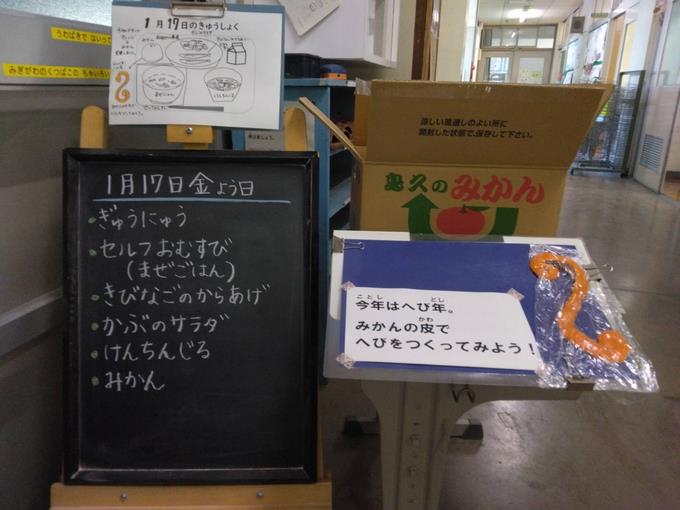 1月17日のきゅうしょく
うわばきで はいって
みぎがわのくつばこの
1月17日金よう日
ぎゅうにゅう
セルフおむすび
(まぜごはん)
きびなごのからあげ
かぶのサラダ
けんちんじる
みかん
涼しい風通しのよい所に
開封した状態で、保存して下さい。
みかん
今年はへび年。
みかんの皮で
へびをつくってみよう!